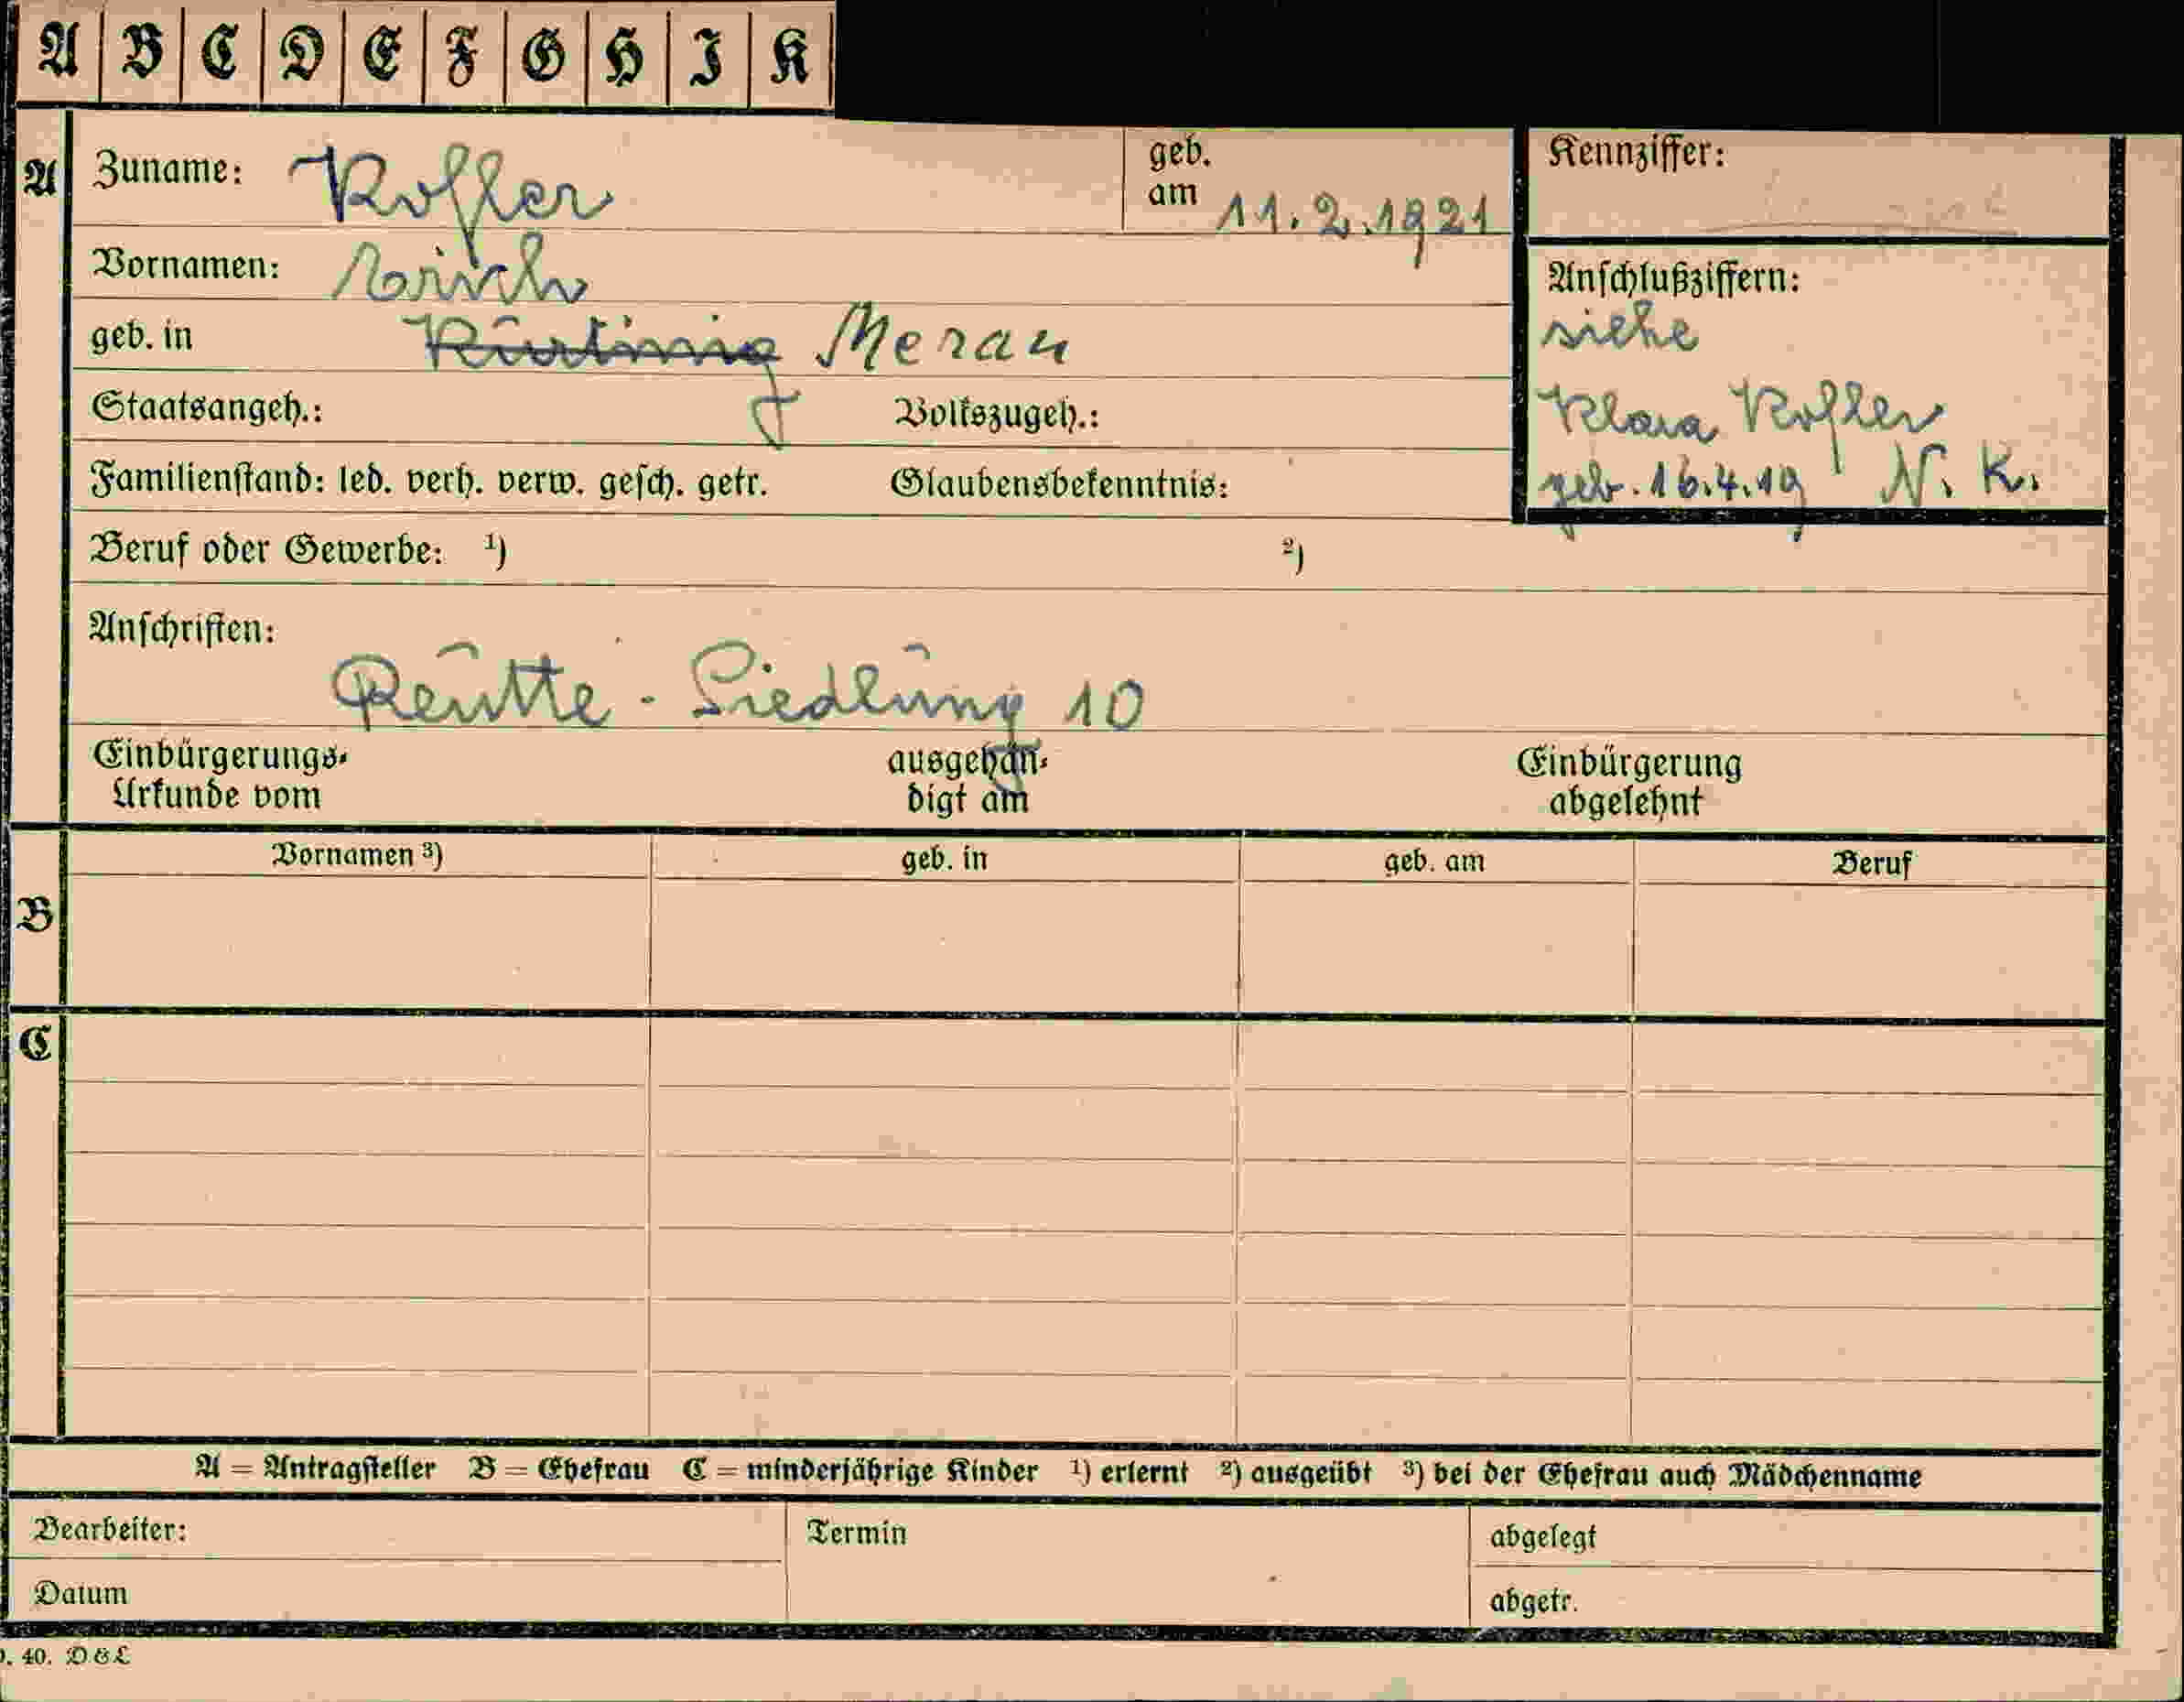 A B C D E F G H I K
A
Zuname: Kofler
geb. am 11.2.1921
Kennziffer:
Vornamen: Erich
Anschlußziffern:
siehe
Klara Kofler
geb. 16.4.19 N. K.
geb. in Kurtinig Meran
Staatsangeh.: Volkszugeh.:
Familienstand: led. verh. verw. gesch. getr. Glaubensbekenntnis:
Beruf oder Gewerbe: ¹) ²)
Anschriften:
Reutte - Siedlung 10
Einbürgerungs- ausgehän- Einbürgerung
Urkunde vom digt am abgelehnt
Vornamen ³) geb. in geb. am Beruf
B
C
A = Antragsteller B = Ehefrau C = minderjährige Kinder ¹) erlernt ²) ausgeübt ³) bei der Ehefrau auch Mädchenname
Bearbeiter: Termin abgelegt
Datum abgetr.
. 40. D & L